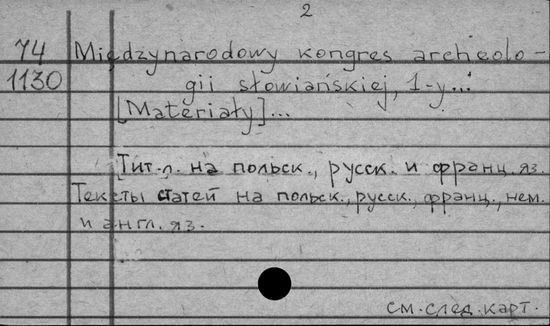 2
74 Międzynarodowy kongres archeolo-
1130 gii słowiańskiej, 1-y...
[Materiały]...
[Тит.л. на польск., русск. и франц. яз.
Тексты статей на польск., русск., франц., нем.
и англ. яз.
см. след. карт.